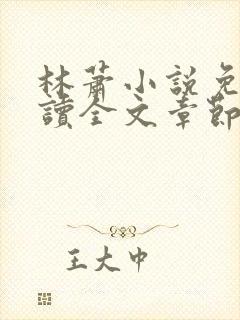 林蕭小說免
讀全文章節
王大中